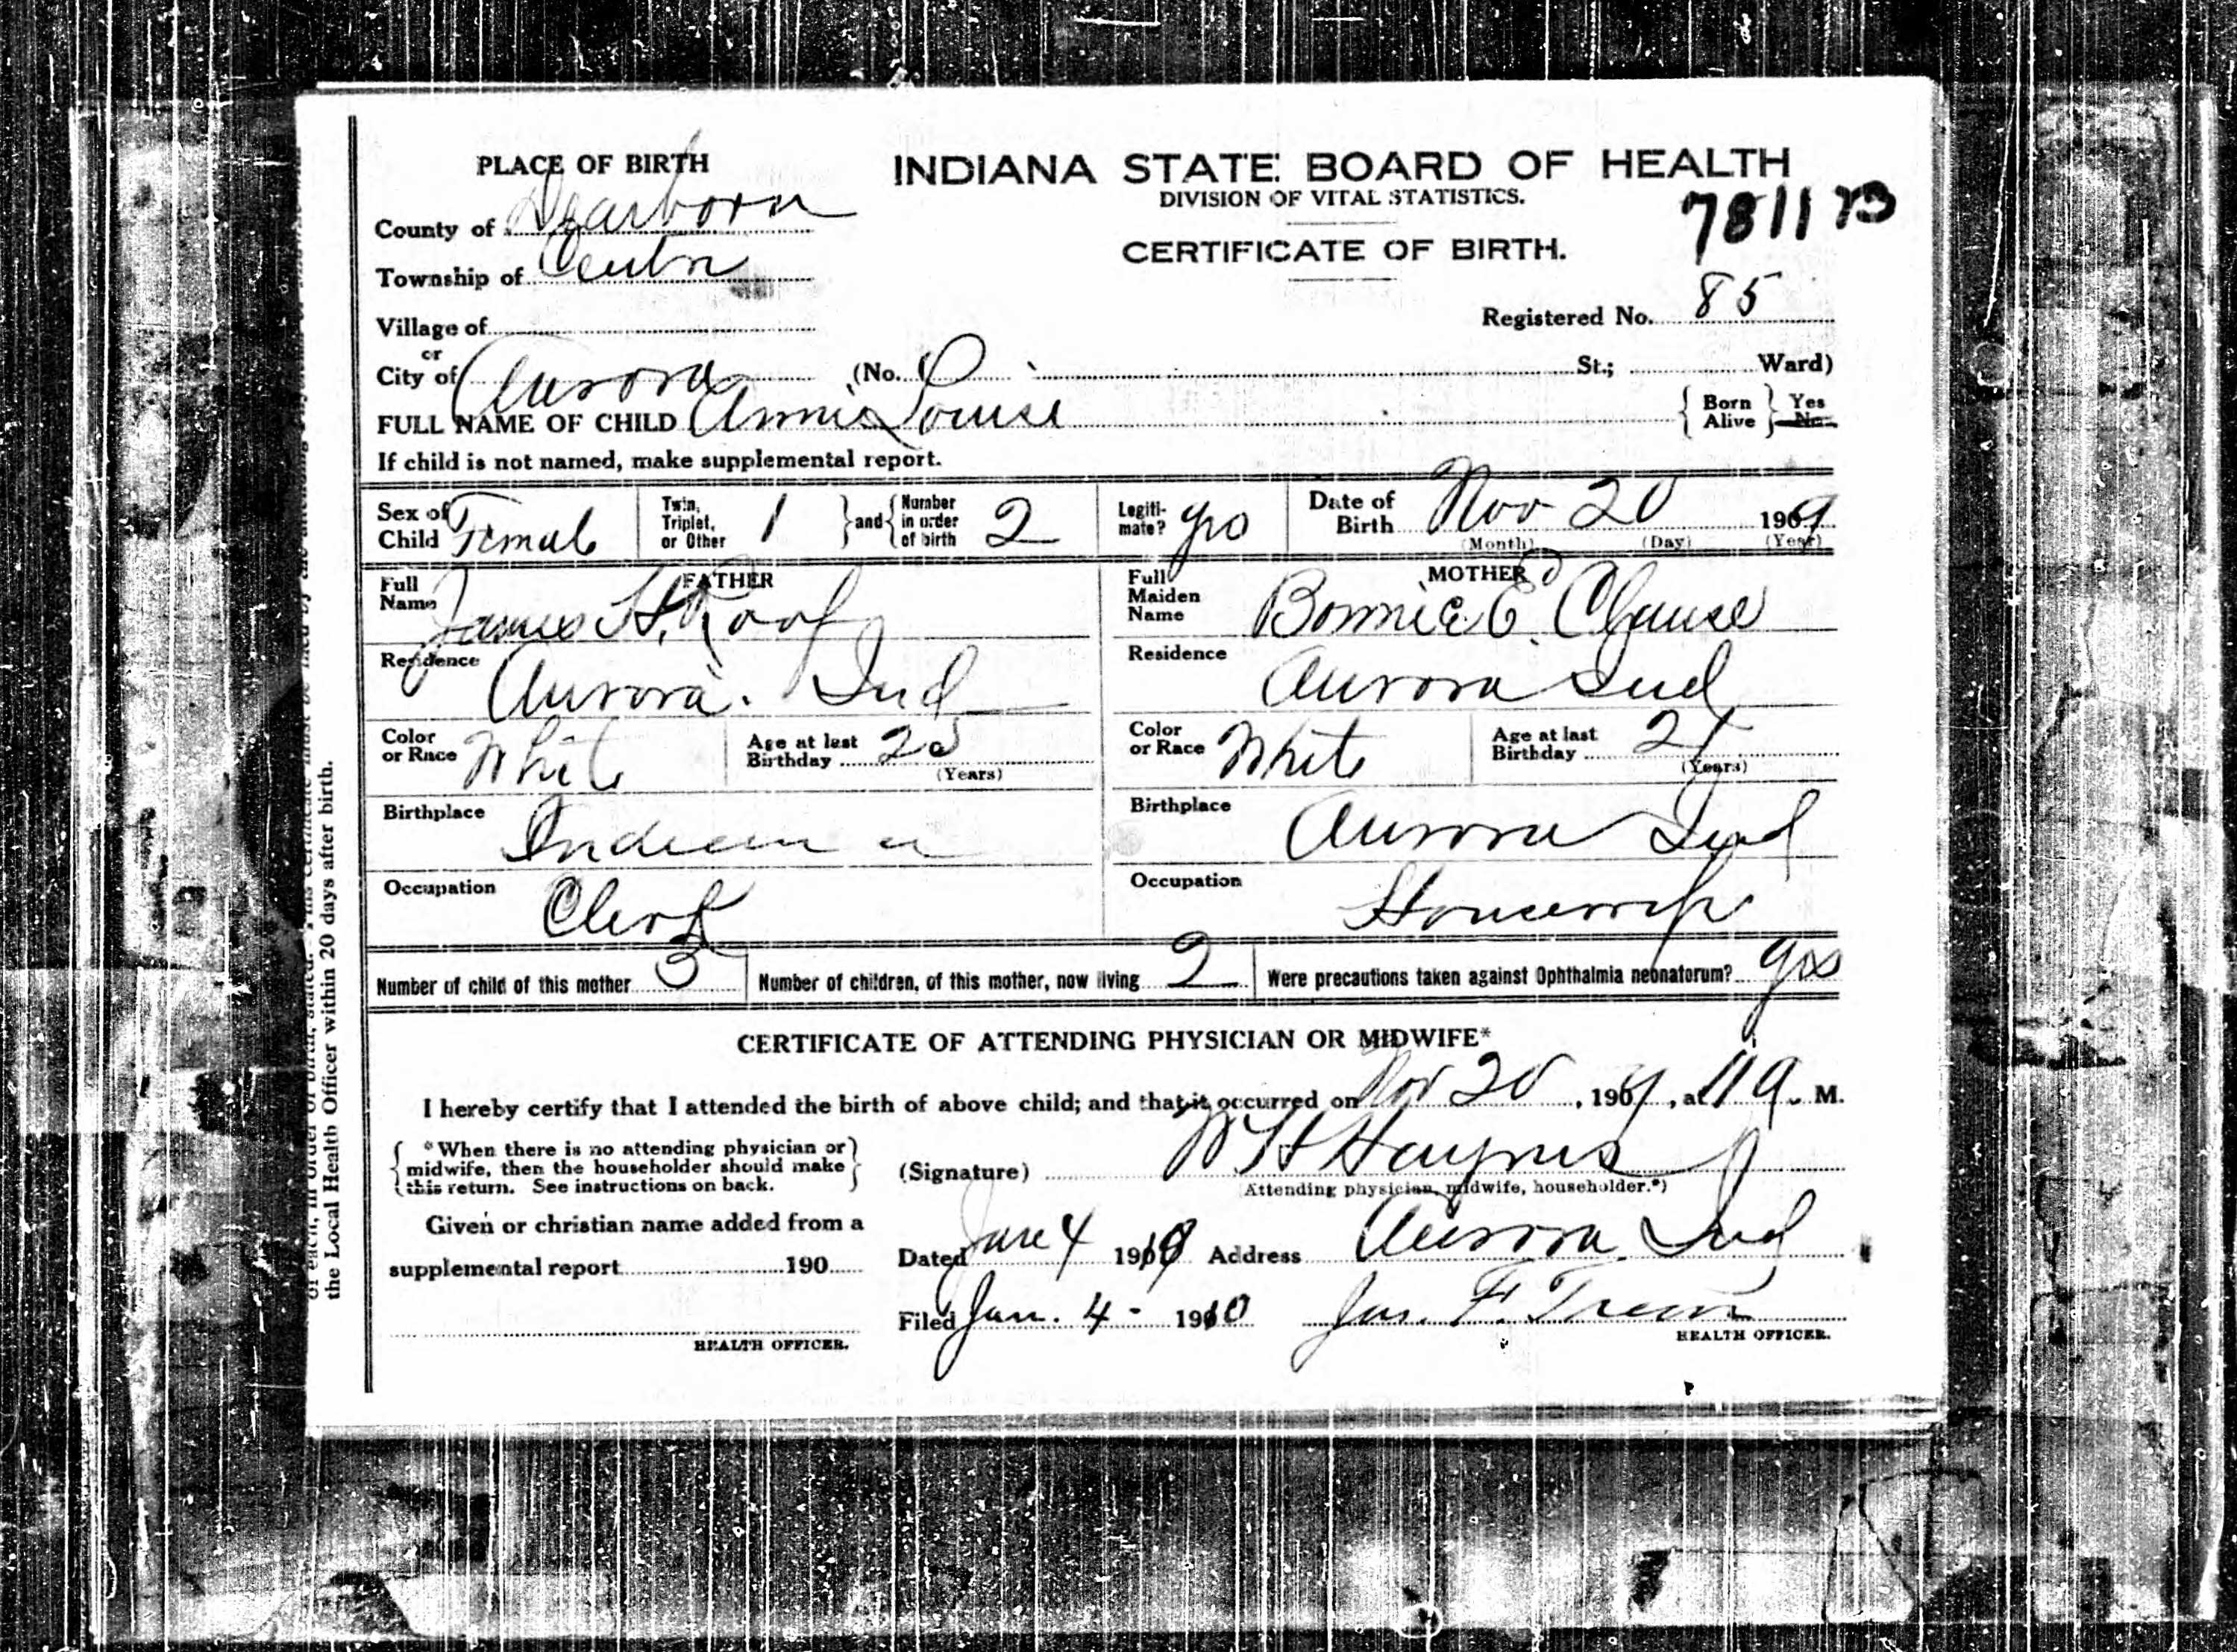 PLACE OF BIRTH
INDIANA STATE BOARD OF HEALTH
DIVISION OF VITAL STATISTICS.
County of Dearborn
CERTIFICATE OF BIRTH.
Township of Center
Village of
Registered No. 85
or
City of Aurora (No. St.; Ward)
FULL NAME OF CHILD Annie Louise { Born Alive } Yes No
If child is not named, make supplemental report.
Sex of Child Female
Twin, Triplet, or Other 1 } and { Number in order of birth 2
Legiti-mate? yes
Date of Birth Nov 20 1909
(Month) (Day) (Year)
FATHER
Full Name James H. Roof
Residence Aurora. Ind
Color or Race White
Age at last Birthday (Years)
Birthplace Indiana
Occupation Clerk
MOTHER
Full Maiden Name Bonnie E. Clause
Residence Aurora Ind
Color or Race White
Age at last Birthday (Years)
Birthplace Aurora Ind
Occupation Housewife
Number of child of this mother 3
Number of children, of this mother, now living 2
Were precautions taken against Ophthalmia neonatorum? yes
CERTIFICATE OF ATTENDING PHYSICIAN OR MIDWIFE*
I hereby certify that I attended the birth of above child; and that it occurred on Nov 20, 1909, at 11 a. M.
{ *When there is no attending physician or midwife, then the householder should make this return. See instructions on back. }
(Signature) W H Haynes
(Attending physician, midwife, householder.*)
Given or christian name added from a
supplemental report 190
HEALTH OFFICER.
Dated Jan 4 1910 Address Aurora Ind
Filed Jan. 4 - 1910 Jas. F. Treon
HEALTH OFFICER.
of each, in order of birth, stated. This certificate must be filed by the attending
the Local Health Officer within 20 days after birth.